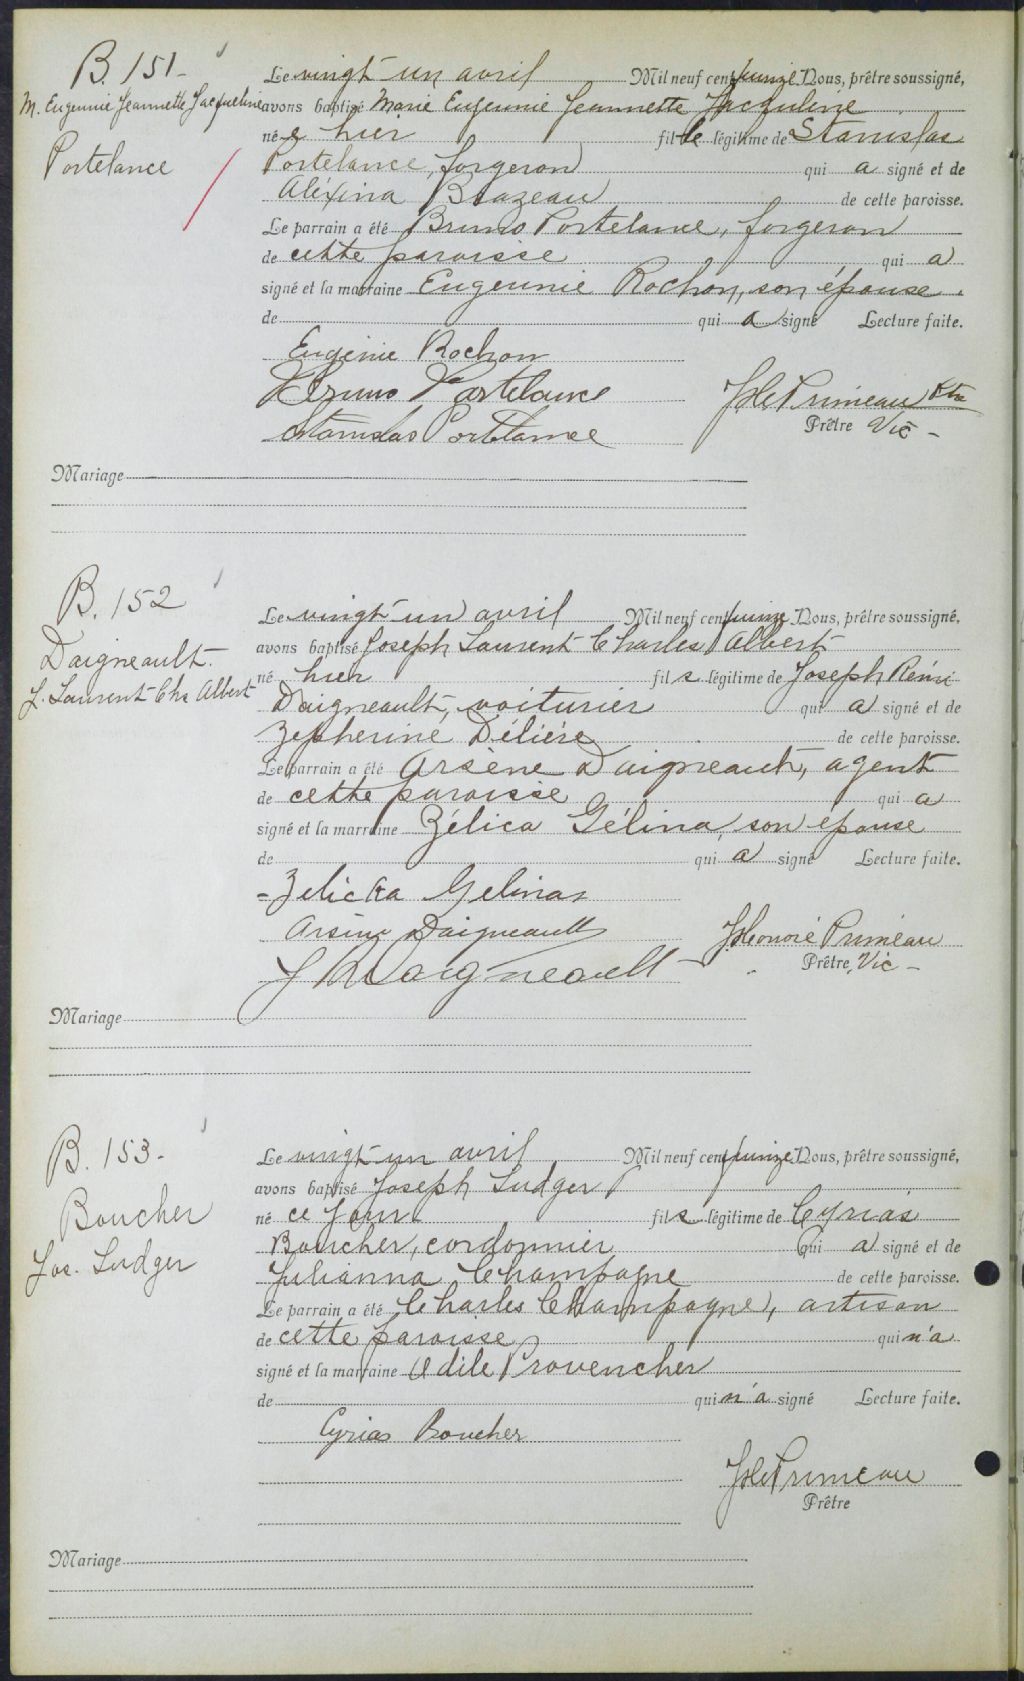 B. 151-
M. Eugennie Jeannette Jacqueline
Portelance
Le vingt-un avril Mil neuf cent quinze Nous, prêtre soussigné,
avons baptisé Marie Eugennie Jeannette Jacqueline
née hier fille légitime de Stanislas
Portelance, forgeron qui a signé et de
Aléxina Brazeau de cette paroisse.
Le parrain a été Bruno Portelance, forgeron
de cette paroisse qui a
signé et la marraine Eugennie Rochon, son épouse.
de qui a signé Lecture faite.
Eugénie Rochon
Bruno Portelance
Stanislas Portelance
JH Primeau Ptre
Prêtre Vic-
Mariage
B. 152
Daigneault.
J. Laurent Chs Albert
Le vingt-un avril Mil neuf cent quinze Nous, prêtre soussigné,
avons baptisé Joseph Laurent Charles Albert
né hier fils légitime de Joseph Rémi
Daigneault, voiturier qui a signé et de
Zepherine Délière de cette paroisse.
Le parrain a été Arsène Daigneault, agent
de cette paroisse qui a
signé et la marraine Zélica Gélina, son épouse
de qui a signé Lecture faite.
Zelicka Gelinas
Arsène Daigneault
J R Daigneault
JHonoré Primeau
Prêtre, Vic-
Mariage
B. 153-
Boucher
Jos. Ludger
Le vingt-un avril Mil neuf cent quinze Nous, prêtre soussigné,
avons baptisé Joseph Ludger
né ce jour fils légitime de Cyrias
Boucher, cordonnier qui a signé et de
Julianna Champagne de cette paroisse.
Le parrain a été Charles Champagne, artisan
de cette paroisse qui n'a
signé et la marraine Odile Provencher
de qui n'a signé Lecture faite.
Cyrias Boucher
JH Primeau
Prêtre
Mariage